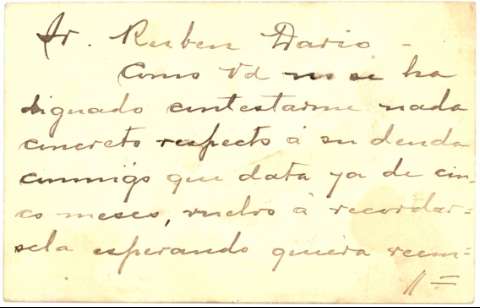 Sr. Ruben Dario -
Como Vd no se ha
dignado contestarme nada
concreto respecto á su deuda
conmigo que data ya de cin-
co meses, vuelvo á recordar-
sela esperando quiera reem-
//=